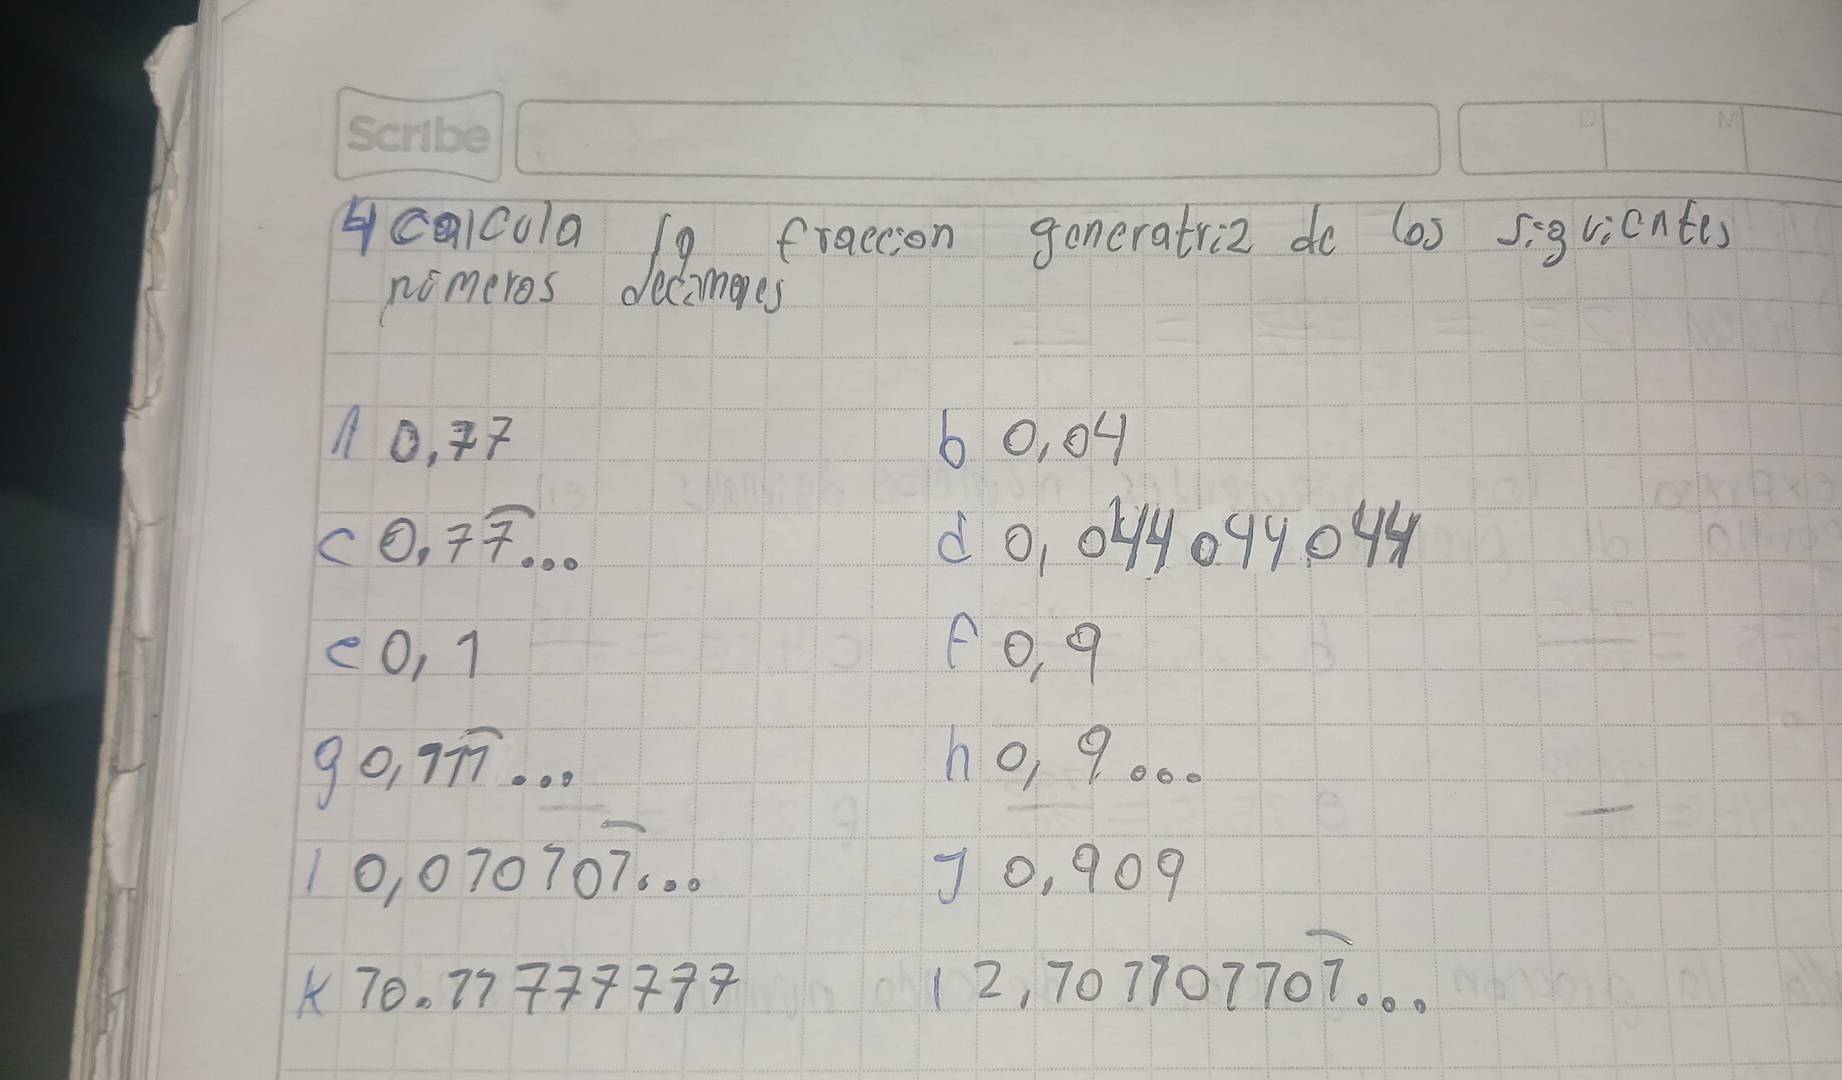 Scribe
D M
4 calcula la fraccion generatriz de los siguientes
números decimales
A 0,77 b 0,04
c 0,77... d 0,044044044
e 0,1 f 0,9
g 0,777... h 0,9...
I 0,070707... J 0,909
K 70.77777777 l 2,707707707...